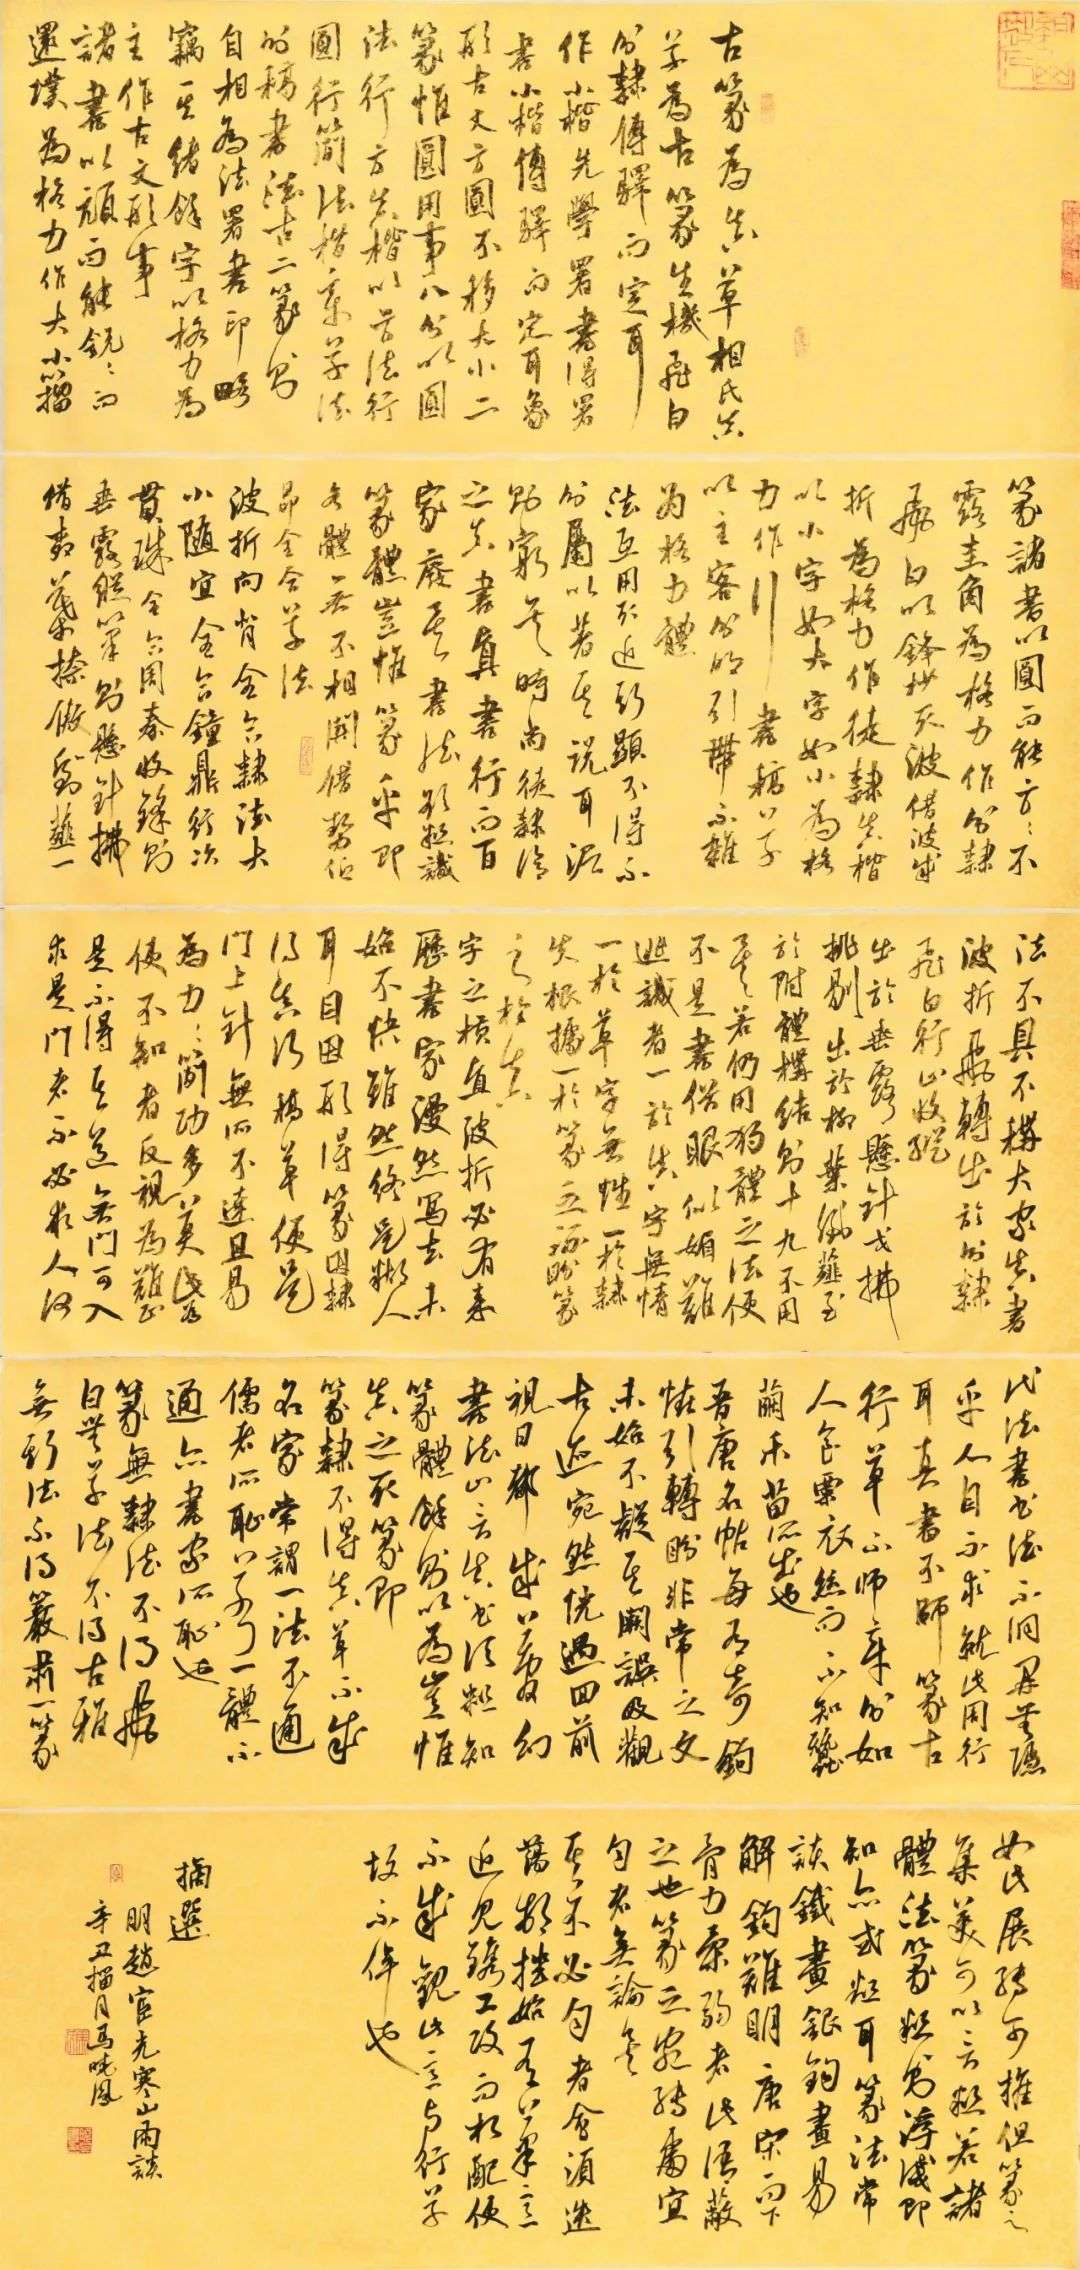 古篆為真草相氏真
草為古篆生機飛白
分隸傅驛而定耳
作小楷先學署書得署
書小楷傅驛而定耳象
形古文方圓不移大小二
篆惟圓用事八分以圓
法行方真楷以方法行
圓行簡法楷章草法
的稿書法古二篆分
自相為法署書印略
竊其緒餘字以格力為
主作古文形事
諸書以頑而能銳銳而
還璞為格力作大小籀
篆諸書以圓而能方方不
露圭角為格力作分隸
飛白以鋒抄灭波借波成
折為格力作徒隸真楷
以小字如大字如小為格
力作行書稿草
以主客分明引帶不雜
為格力體
法互用形近形顯不得不
分屬以著其說耳泥
則窮矣時尚徒隸謂
之真書真書行而百
家廢其書法疑誤
篆體豈惟篆乎即
各體亦不相關借勢但
昂全合草法
波折向背全合隸法大
小隨宜全合鐘鼎行次
貫珠全合周秦收鋒則
垂露縱筆則懸針拂
借柳葉捺倣到薤一
法不具不稱大家真書
波折飛轉出於分隸
飛白行止收縱
出於垂露懸針戈拂
挑剔出於柳葉倒薤至
於附體構結則十九不用
其若仍用狗體之法便
不是書借眼似媚難
逃識者一於真字無情
一於草字無性一於隸
失根據一於篆之琢盼篆
之於真
字之橫直波折必有来
歷書家漫然寫去未
始不快雖然終是糊人
耳目因形得篆因隸
得真行稿草便是
門上針無所不達且易
為力力簡功多莫此為
使不知者反視為難正
是不得其道無門可入
求是門者不必求人何
代法書書法不洞界其隱
乎人自不求就此用行
耳真書不師篆古
行草不師章分如
人食粟衣絲而不知蠶
繭禾苗所出也
吾唐名帖每多奇鉤
怪引轉盼非常之文
未始不疑其闕誤及觀
古迹宛然恍遇回前
視日都成草草幻
書法止言真書須疑知
篆體餘分以為豈惟
真之形篆即
篆隸不得真草不成
名家常謂一法不通
儒者所恥草了一體不
通亦書家所恥也
篆無隸法不得飛
白無草法不得古雅
無斯法不得嚴肅一篆
如此展轉可推但篆之
集美可以言疑若諸
體法篆疑分浮淺即
知亦或疑耳篆法常
談鐵畫銀鉤畫易
解鉤難明唐宋而下
骨力柔弱者此語蔽
之也篆之宛轉處宜
勻者無論矣
其不必勻者會須迭
蕩擲捺始有草意
近見鐫工改而相配便
不成觀此言与行草
故不倖也
摘選
明趙宦光寒山帚談
辛丑榴月馬曉鳳